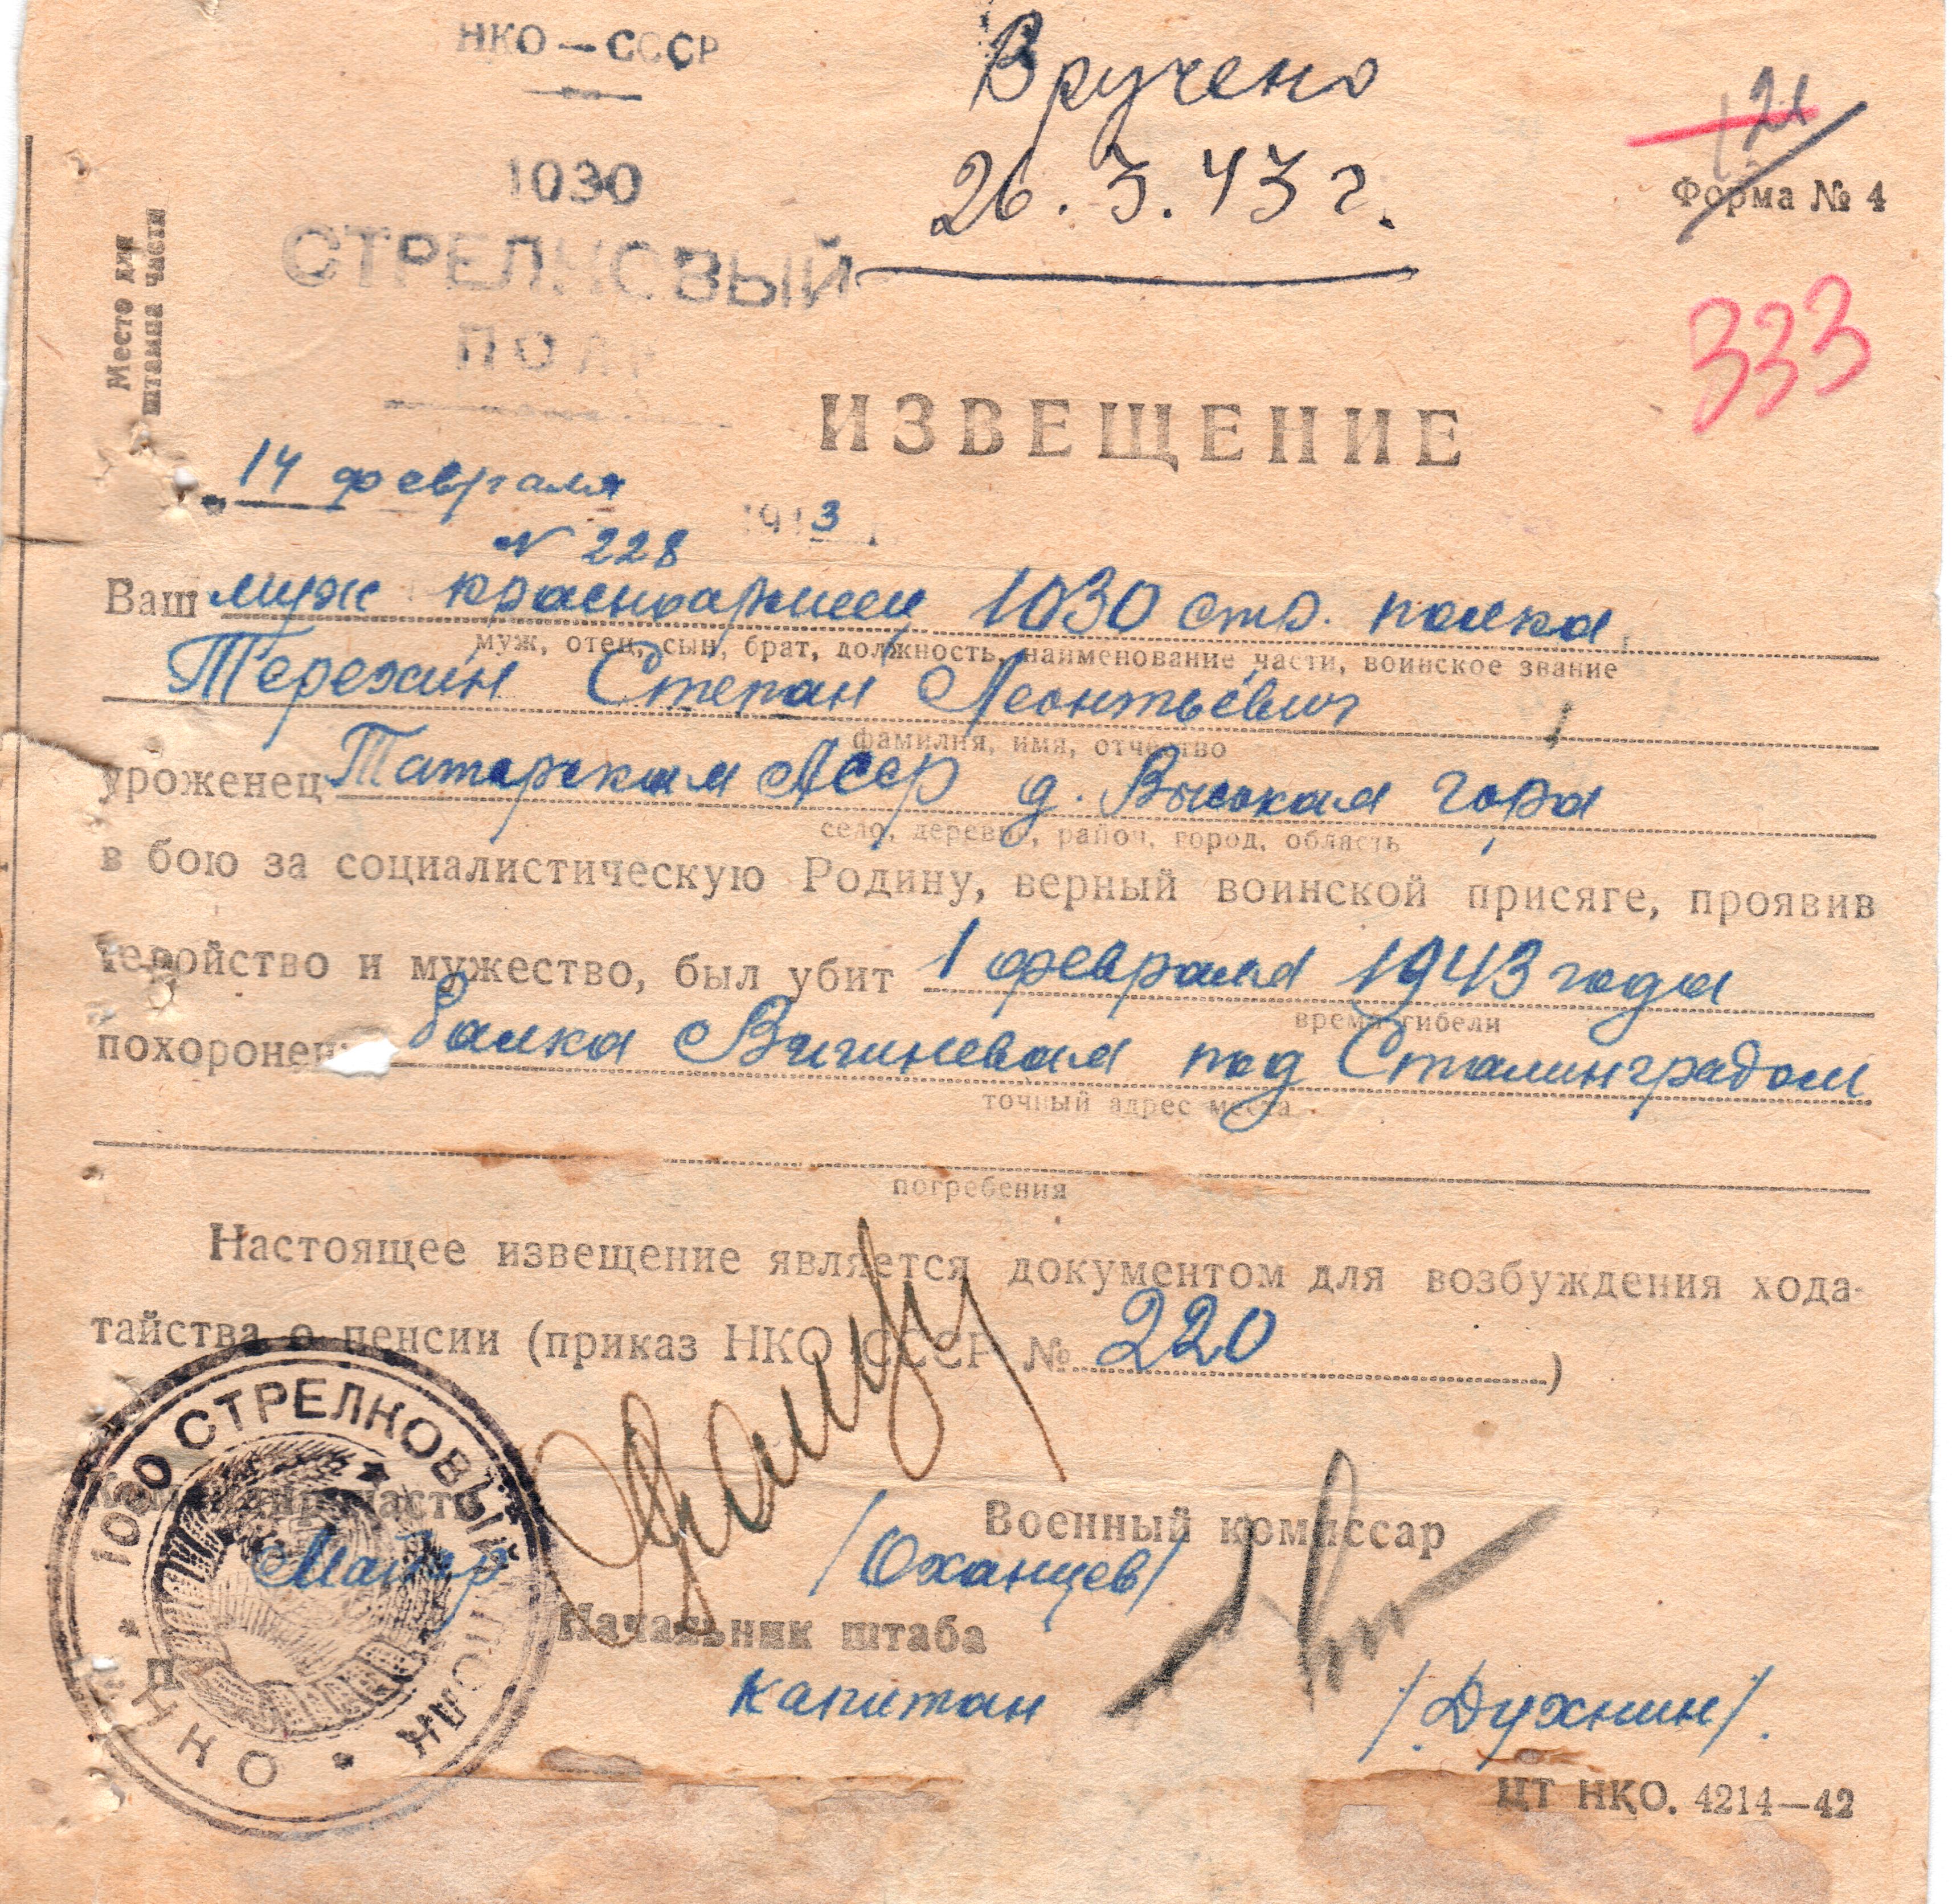 НКО — СССР
1030
СТРЕЛКОВЫЙ
ПОЛК
Вручено
26. 3. 43 г.
121
Форма № 4
333
Место для
штампа части
ИЗВЕЩЕНИЕ
14 февраля 1943 г.
N 228
Ваш муж красноармеец 1030 стр. полка,
муж, отец, сын, брат, должность, наименование части, воинское звание
Терехин Степан Леонтьевич
фамилия, имя, отчество
уроженец Татарская АССР д. Высокая гора
село, деревня, район, город, область
в бою за социалистическую Родину, верный воинской присяге, проявив
геройство и мужество, был убит 1 февраля 1943 года
время гибели
похоронен балка Вишневая под Сталинградом
точный адрес места
погребения
Настоящее извещение является документом для возбуждения хода-
тайства о пенсии (приказ НКО СССР № 220)
1030 СТРЕЛКОВЫЙ ПОЛК * НКО
Командир части
Военный комиссар
Майор /Оханцев/
Начальник штаба
капитан /Духнин/.
ЦТ НКО. 4214—42